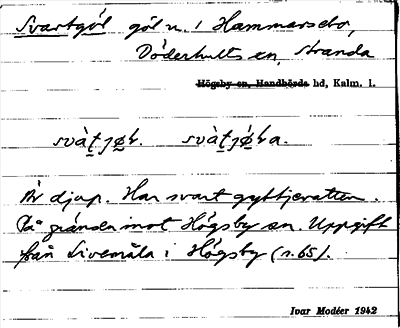 Svartgöl göl n. i Hammarsebo,
Döderhults sn, Stranda
Högsby sn, Handbörds hd, Kalm. l.
svàt̠jø̠l. svàt̠jǿ̠la.
Är djup. Har svart gyttjevatten.
På gränsen mot Högsby sn. Uppgift
från Livemåla i Högsby (n. 65).
Ivar Modéer 1942